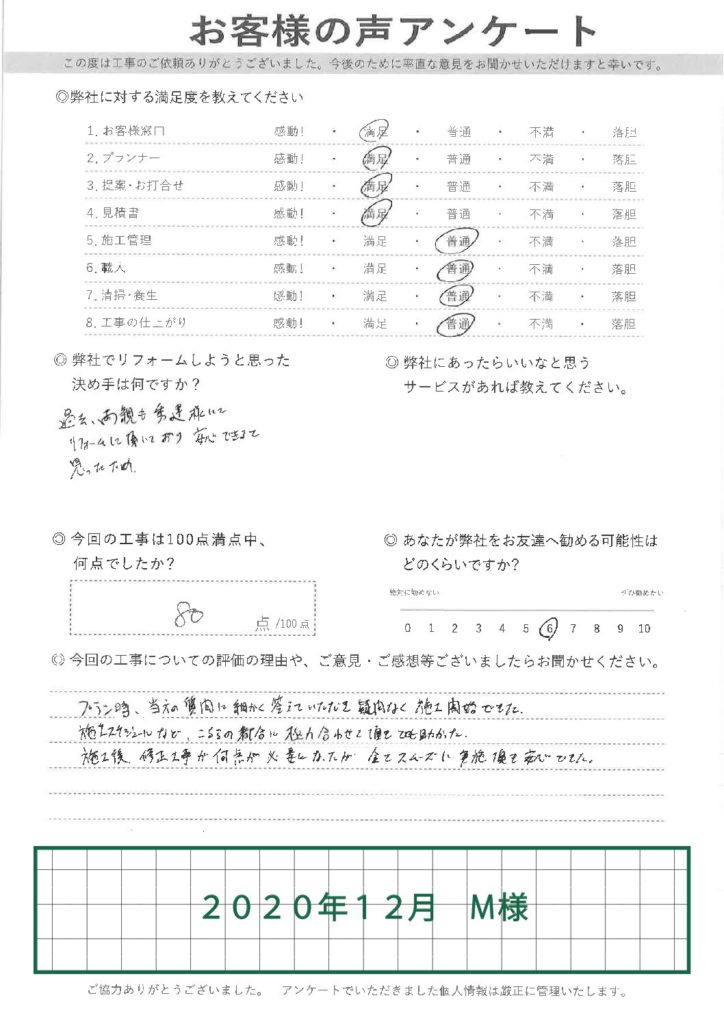 お客様の声アンケート
この度は工事のご依頼ありがとうございました。今後のために率直な意見をお聞かせいただけますと幸いです。
◎弊社に対する満足度を教えてください
1. お客様窓口 感動！ ・ 満足 ・ 普通 ・ 不満 ・ 落胆
2. プランナー 感動！ ・ 満足 ・ 普通 ・ 不満 ・ 落胆
3. 提案・お打合せ 感動！ ・ 満足 ・ 普通 ・ 不満 ・ 落胆
4. 見積書 感動！ ・ 満足 ・ 普通 ・ 不満 ・ 落胆
5. 施工管理 感動！ ・ 満足 ・ 普通 ・ 不満 ・ 落胆
6. 職人 感動！ ・ 満足 ・ 普通 ・ 不満 ・ 落胆
7. 清掃・養生 感動！ ・ 満足 ・ 普通 ・ 不満 ・ 落胆
8. 工事の仕上がり 感動！ ・ 満足 ・ 普通 ・ 不満 ・ 落胆
◎ 弊社でリフォームしようと思った
決め手は何ですか？
過去、両親も 様にて
リフォームに頂いており 安心できると
思ったため
◎ 弊社にあったらいいなと思う
サービスがあれば教えてください。
◎ 今回の工事は100点満点中、
何点でしたか？
80 点 /100点
◎ あなたが弊社をお友達へ勧める可能性は
どのくらいですか？
絶対に勧めない ぜひ勧めたい
0 1 2 3 4 5 6 7 8 9 10
◎ 今回の工事についての評価の理由や、ご意見・ご感想等ございましたらお聞かせください。
プラン時、当方の質問に細かく答えていただき疑問なく施工開始できた。
施工スケジュールなど、こちらの都合に極力合わせて頂きとても助かった。
施工後、修正工事が何点か必要になったが全てスムーズに実施頂き安心できた。
2020年12月 M様
ご協力ありがとうございました。 アンケートでいただきました個人情報は厳正に管理いたします。